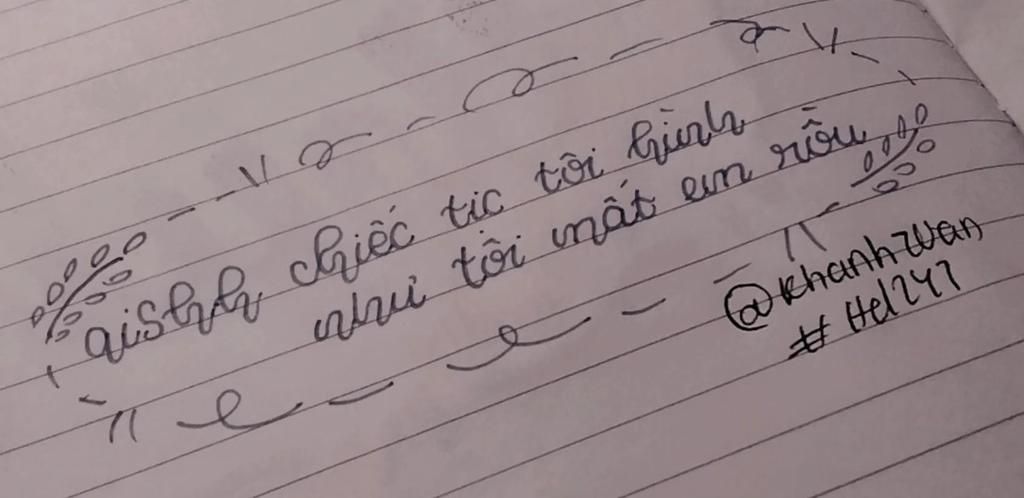 aishh chiếc tic tôi hình
như tôi mất em rồi
@Khanhzuan
#Hd247